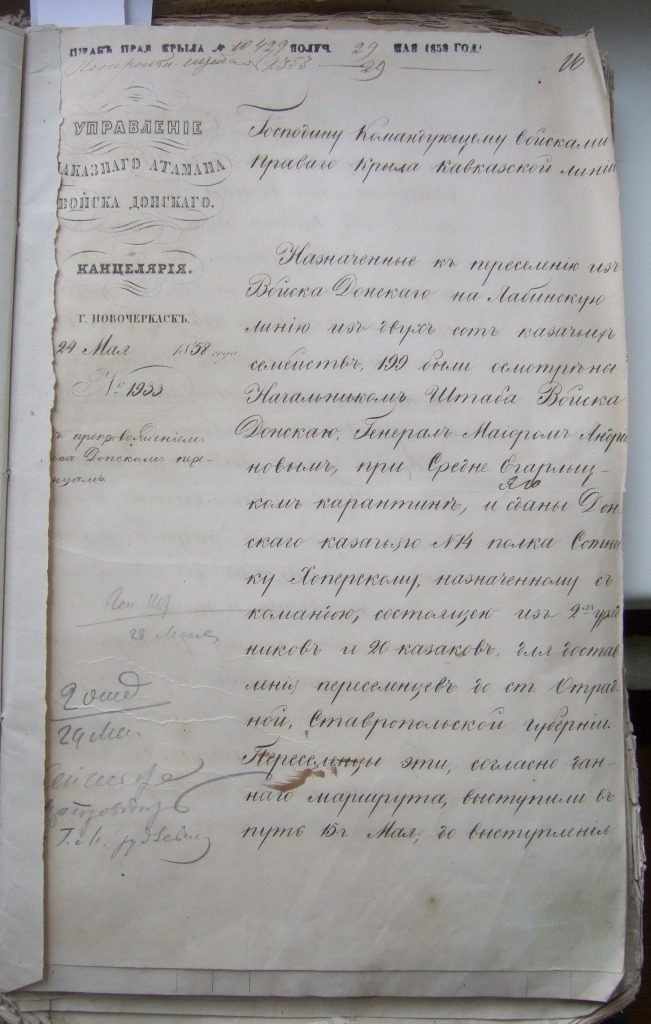 ШТАБЪ ПРАВ КРЫЛА № 10429 ПОЛУЧ. 29 МАЯ 1858 ГОДА
1353 29
26
УПРАВЛЕНІЕ
НАКАЗНАГО АТАМАНА
ВОЙСКА ДОНСКАГО.
КАНЦЕЛЯРІЯ.
Г. НОВОЧЕРКАСКЪ.
24 Мая 1858 года
№ 1933
съ препровожденіемъ
Донскомъ пере-
Господину Командующему войсками
Праваго Крыла Кавказской линіи
Назначенные къ переселенію изъ
Войска Донскаго на Лабинскую
линію изъ двухъ сотъ казачьихъ
семействъ, 199 были осмотрѣны
Начальникомъ Штаба Войска
Донскаго, Генералъ Маіоромъ Андрія
новымъ, при Средне Егарлыц-
комъ карантинѣ, и сданы Дон
скаго казачьяго №14 полка Сотни
ку Хоперскому, назначенному съ
командою, состоящею изъ 2хъ уряд
никовъ и 20 казаковъ, для достав
ленія переселенцевъ до ст. Отрад
ной, Ставропольской губерніи.
Переселенцы эти, согласно дан-
наго маршрута, выступили въ
путь 15 Мая; до выступленія
28 Мая
2 отд
29 Ма.